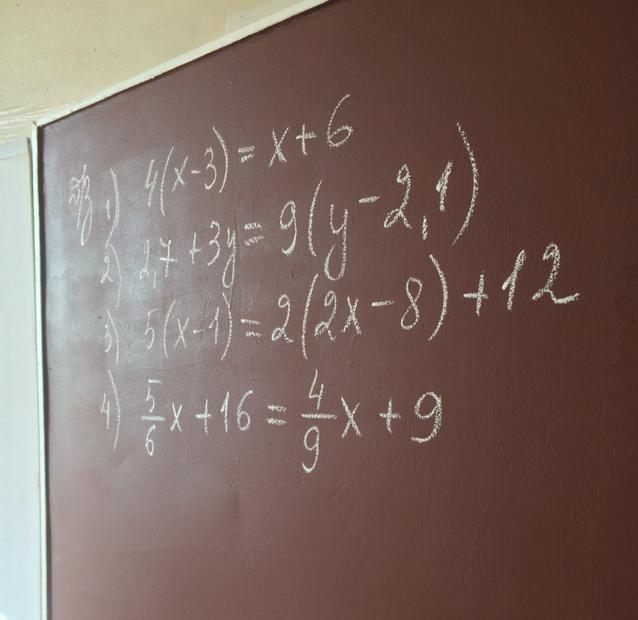 д/з 1) 4(x-3)=x+6
2) 2,7+3y=9(y-2,1)
3) 5(x-1)=2(2x-8)+12
4) 5/6x+16=4/9x+9